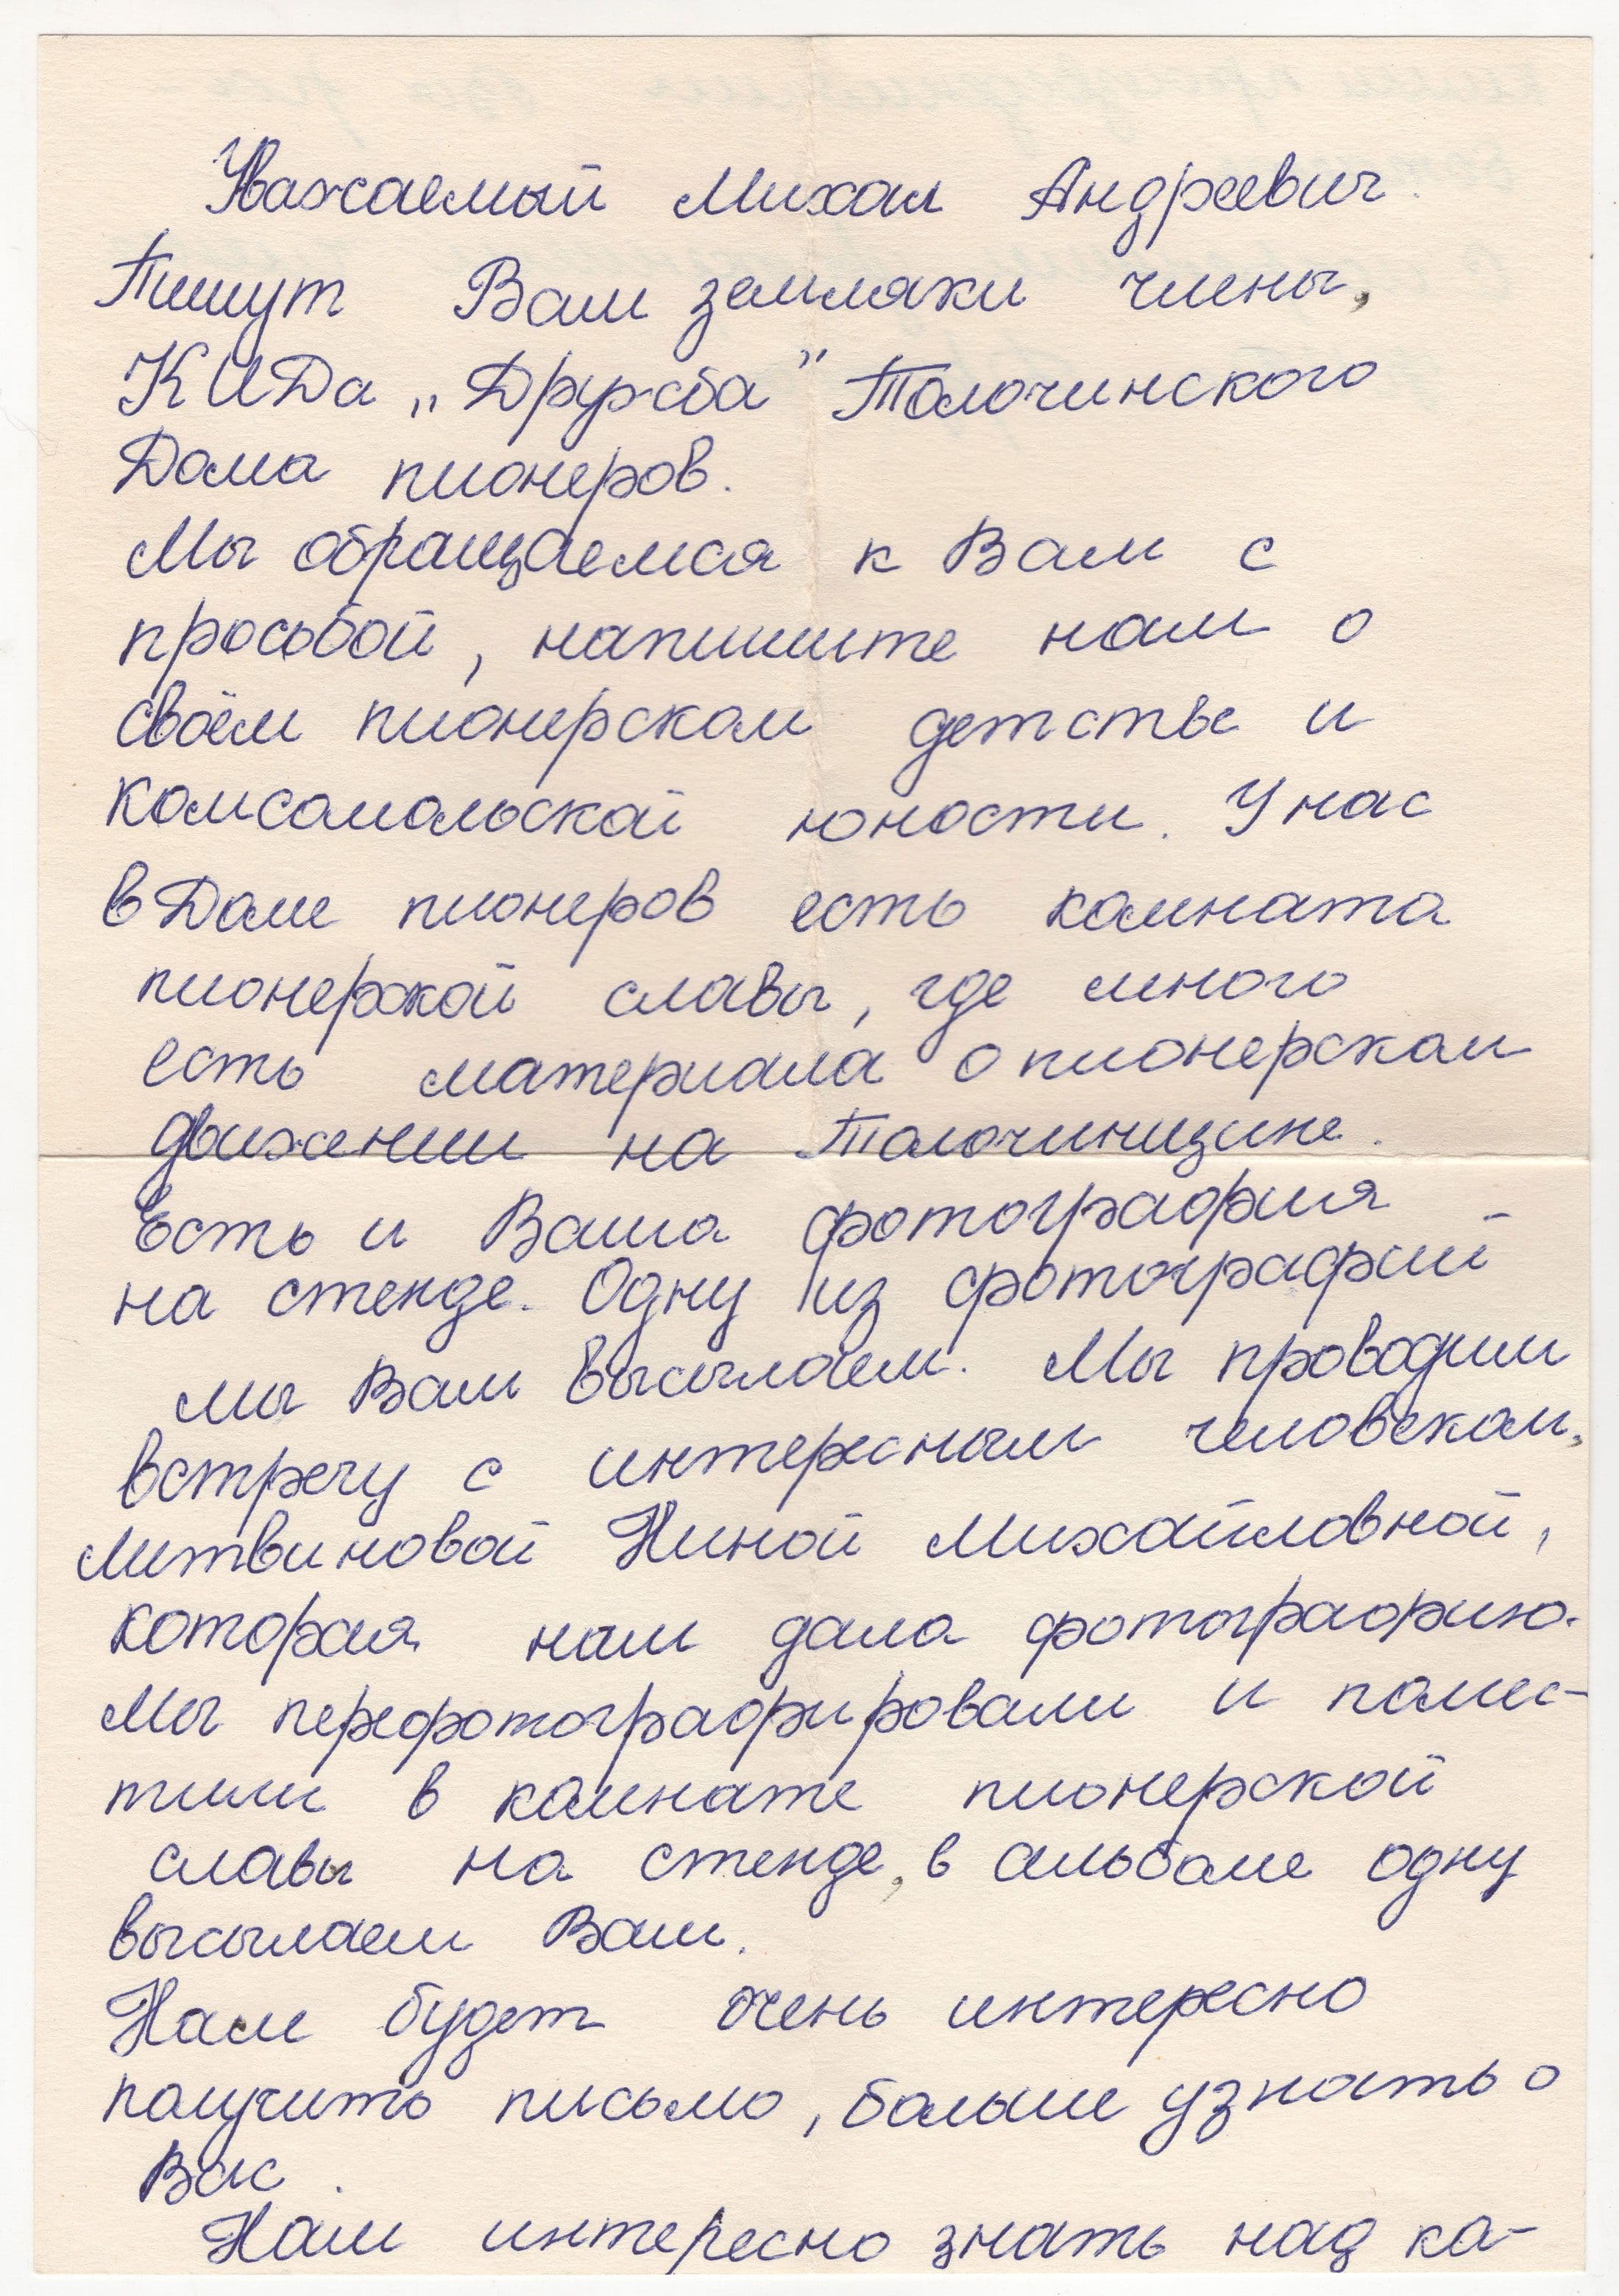 Уважаемый Михаил Андреевич.
Пишут Вам земляки члены,
КИДа „Дружба" Толочинского
Дома пионеров.
Мы обращаемся к Вам с
просьбой, напишите нам о
своём пионерском детстве и
комсомольской юности. У нас
в Доме пионеров есть комната
пионерской славы, где много
есть материала о пионерском
движении на Толочинщине.
Есть и Ваша фотография
на стенде. Одну из фотографий
мы Вам высылаем. Мы проводим
встречу с интересным человеком,
Литвиновой Ниной Михайловной,
которая нам дала фотографию.
Мы перефотографировали и помес-
тили в комнате пионерской
славы на стенде, в альбоме одну
высылаем Вам.
Нам будет очень интересно
получить письмо, больше узнать о
Вас.
Нам интересно знать над ка-